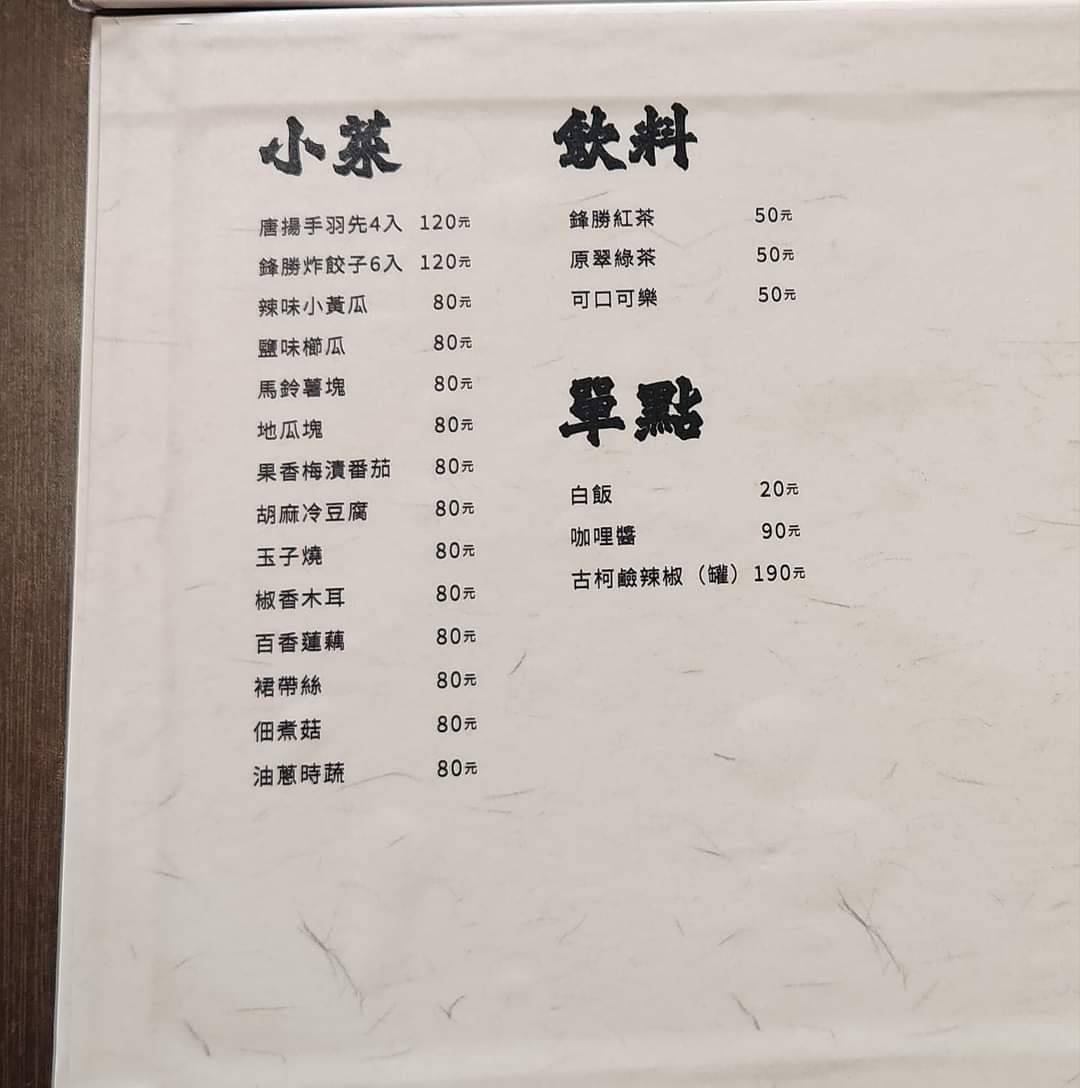 小菜
唐揚手羽先4入 120元
鋒勝炸餃子6入 120元
辣味小黃瓜 80元
鹽味櫛瓜 80元
馬鈴薯塊 80元
地瓜塊 80元
果香梅漬番茄 80元
胡麻冷豆腐 80元
玉子燒 80元
椒香木耳 80元
百香蓮藕 80元
裙帶絲 80元
佃煮菇 80元
油蔥時蔬 80元
飲料
鋒勝紅茶 50元
原翠綠茶 50元
可口可樂 50元
單點
白飯 20元
咖哩醬 90元
古柯鹼辣椒（罐） 190元